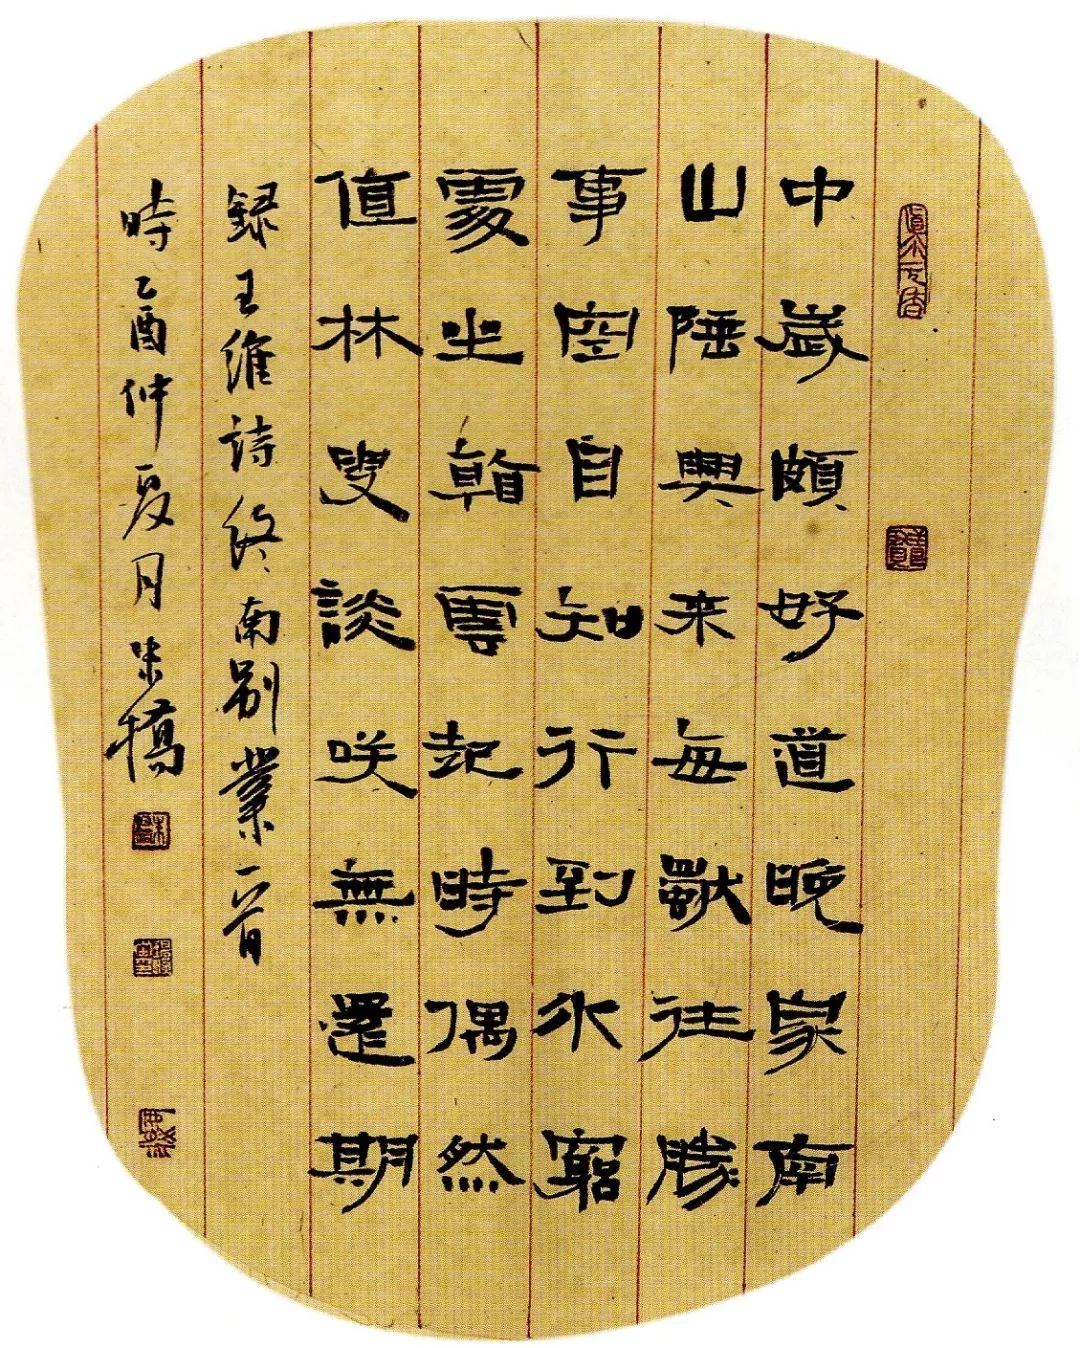 中歲頗好道晚家南
山陲興来每獨往勝
事空自知行到水窮
處坐看雲起時偶然
值林叟談咲無還期
録王維詩終南別業一首
時乙酉仲夏月